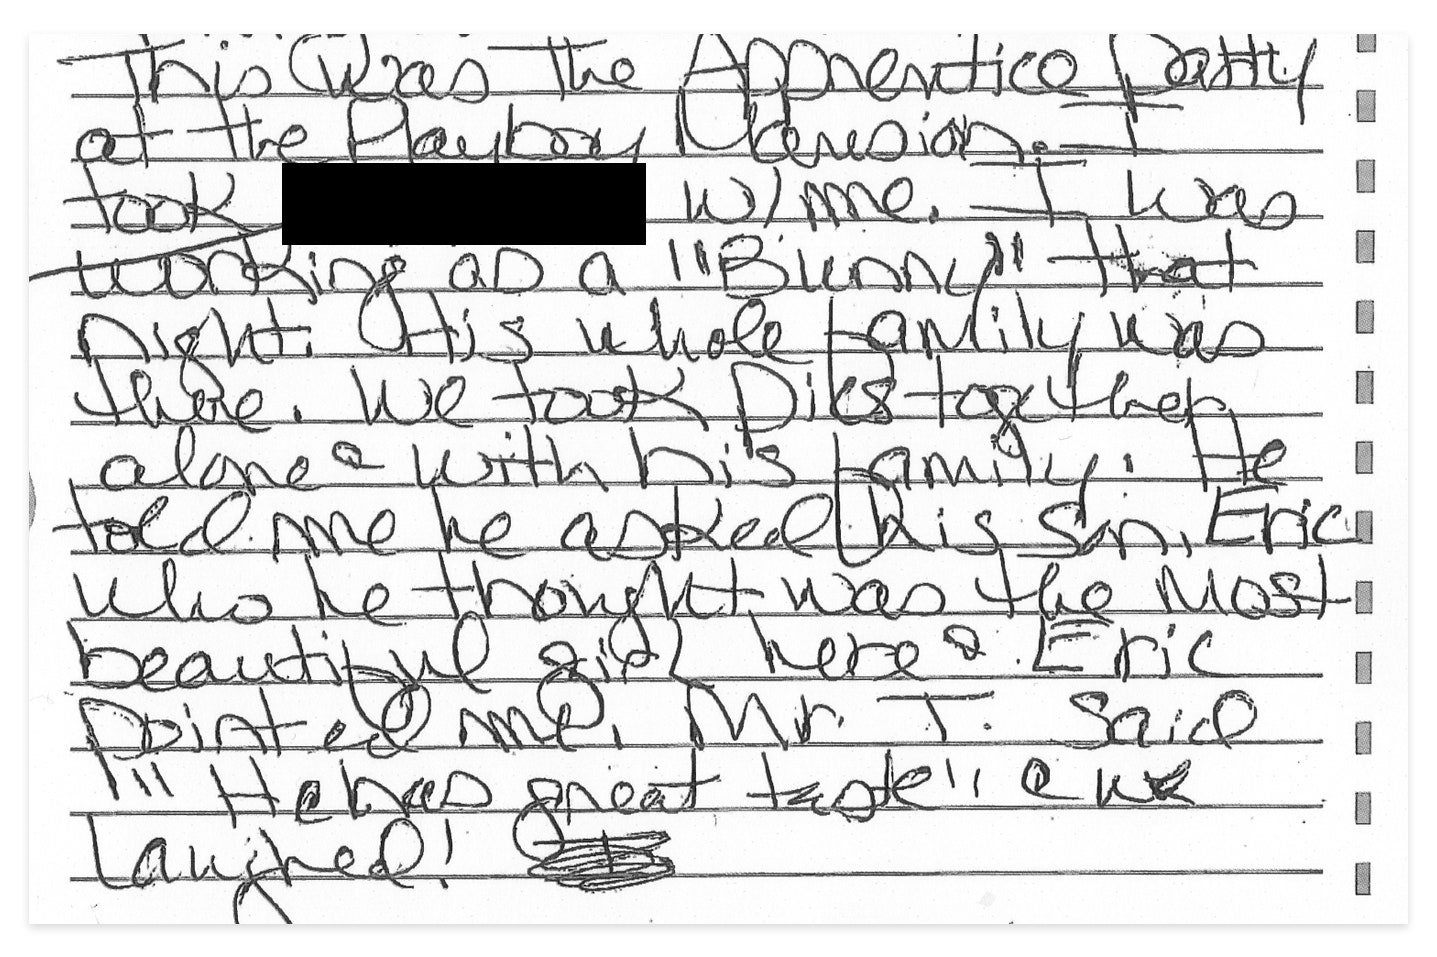 This was the Apprentice Party
at the Playboy Mansion. I
took w/me. I was
working as a "Bunny" that
night. His whole family was
there. We took Pics together,
alone & with his family. He
told me he asked his son, Eric
who he thought was the most
beautiful girl here & Eric
pointed me. Mr. T. Said
"He has great taste" & we
laughed!